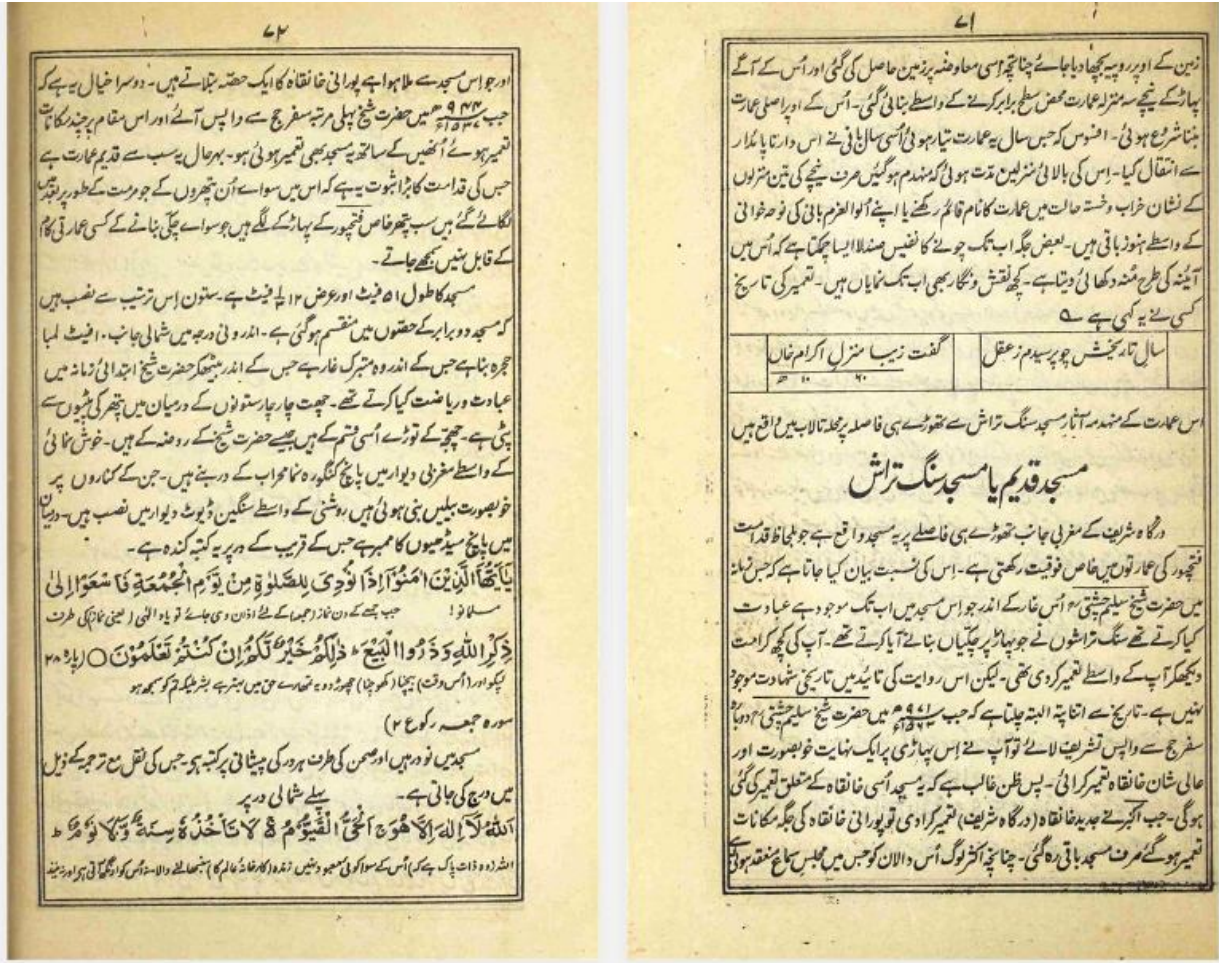 ۷۱
زمین کے اوپر روپیہ بچھا دیا جائے چنانچہ اسی معاوضہ پر زمین حاصل کی گئی اور اُس کے آگے
پہاڑ کے نیچے سہ منزلہ عمارت محض سطح برابر کرنے کے واسطے بنائی گئی۔ اُس کے اوپر اصلی عمارت
بننا شروع ہوئی۔ افسوس کہ جس سال یہ عمارت تیار ہوئی اُسی سال بانی نے اس دار ناپائدار
سے انتقال کیا۔ اِس کی بالائی منزلیں مدت ہوئی کہ منہدم ہوگئیں صرف نیچے کی تین منزلوں
کے نشان خراب و خستہ حالت میں عمارت کا نام قائم رکھنے یا اپنے الوالعزم بانی کی نوحہ خوانی
کے واسطے ہنوز باقی ہیں۔ بعض جگہ اب تک چونے کا نفیس صندلا ایسا چمکتا ہے کہ اُس میں
آئینہ کی طرح مُنہ دکھائی دیتا ہے۔ کچھ نقش و نگار بھی اب تک نمایاں ہیں۔ تعمیر کی تاریخ
کسی نے یہ کہی ہے ؎
سالِ تاریخش چو پرسیدم ز عقل گفت زیبا منزلِ اکرام خاں
۱۰۶۰ھ
اس عمارت کے منہدمہ آثار مسجد سنگ تراش سے تھوڑے ہی فاصلہ پر محلہ تالاب میں واقع ہیں
مسجد قدیم یا مسجد سنگ تراش
درگاہ شریف کے مغربی جانب تھوڑے ہی فاصلے پر یہ مسجد واقع ہے جو بلحاظ قدامت
فتحپور کی عمارتوں میں خاص فوقیت رکھتی ہے۔ اِس کی نسبت بیان کیا جاتا ہے کہ جس زمانہ
میں حضرت شیخ سلیم چشتیؒ اُس غار کے اندر جو اِس مسجد میں اب تک موجود ہے عبادت
کیا کرتے تھے سنگ تراشوں نے جو پہاڑ پر چکیاں بنانے آیا کرتے تھے۔ آپ کی کچھ کرامت
دیکھکر آپ کے واسطے تعمیر کردی تھی۔ لیکن اس روایت کی تائید میں تاریخی شہادت موجود
نہیں ہے۔ تاریخ سے اتنا پتہ البتہ چلتا ہے کہ جب ۹۷۱ھ میں حضرت شیخ سلیم چشتیؒ دوبارہ
سفر حج سے واپس تشریف لائے تو آپ نے اِس پہاڑی پر ایک نہایت خوبصورت اور
عالی شان خانقاہ تعمیر کرائی۔ پس ظن غالب ہے کہ یہ مسجد اُسی خانقاہ کے متعلق تعمیر کی گئی
ہوگی۔ جب اکبر نے جدید خانقاہ (درگاہ شریف) تعمیر کرادی تو پورانی خانقاہ کی جگہ مکانات
تعمیر ہوگئے صرف مسجد باقی رہ گئی۔ چنانچہ اکثر لوگ اُس دالان کو جس میں مجلس سماع منعقد ہوتی ہے
۷۲
اور جو اِس مسجد سے ملا ہوا ہے پورانی خانقاہ کا ایک حصّہ بتلاتے ہیں۔ دوسرا خیال یہ ہے کہ
جب ۹۴۴ھ ۱۵۳۷ء میں حضرت شیخ پہلی مرتبہ سفر حج سے واپس آئے اور اس مقام پر چند مکانات
تعمیر ہوئے اُنھیں کے ساتھ یہ مسجد بھی تعمیر ہوئی ہو۔ بہرحال یہ سب سے قدیم عمارت ہے
جس کی قدامت کا بڑا ثبوت یہ ہے کہ اس میں سواے اُن پتھروں کے جو مرمت کے طور پر بعد میں
لگائے گئے ہیں سب پتھر خاص فتحپور کے پہاڑ کے لگے ہیں جو سواے چکّی بنانے کے کسی عمارتی کام
کے قابل نہیں سمجھے جاتے۔
مسجد کا طول ۵۱ فیٹ اور عرض ۱۲ فیٹ ہے۔ ستون اِس ترتیب سے نصب ہیں
کہ مسجد دو برابر کے حصّوں میں منقسم ہوگئی ہے۔ اندرونی درجہ میں شمالی جانب ۱۰ فیٹ لمبا
حجرہ بنا ہے جس کے اندر وہ متبرک غار ہے جس کے اندر بیٹھکر حضرت شیخ ابتدائی زمانہ میں
عبادت و ریاضت کیا کرتے تھے۔ چھت چار چار ستونوں کے درمیان میں پتھر کی پٹیوں سے
پٹی ہے۔ چھجّے کے توڑے اُسی قسم کے ہیں جیسے حضرت شیخ کے روضہ کے ہیں۔ خوش نمائی
کے واسطے مغربی دیوار میں پانچ کنگورہ نما محراب کے در بنے ہیں۔ جن کے کناروں پر
خوبصورت بیلیں بنی ہوئی ہیں روشنی کے واسطے سنگین ڈیوٹ دیوار میں نصب ہیں۔ درمیان
میں پانچ سیڑھیوں کا ممبر ہے جس کے قریب کے در پر یہ کتبہ کندہ ہے۔
یٰۤاَیُّهَا الَّذِیْنَ اٰمَنُوْۤا اِذَا نُوْدِیَ لِلصَّلٰوةِ مِنْ یَّوْمِ الْجُمُعَةِ فَاسْعَوْا اِلٰی
مسلمانو! جب جمعے کے دن نماز (جمعہ) کے لئے اذان دی جائے تو یاد الٰہی (یعنی نماز) کی طرف
ذِکْرِ اللّٰهِ وَذَرُوا الْبَیْعَ ؕ ذٰلِکُمْ خَیْرٌ لَّکُمْ اِنْ کُنْتُمْ تَعْلَمُوْنَ ○ (پارہ ۲۸
لپکو اور (اُس وقت) بیچنا (کھوچنا) چھوڑ دو یہ تمھارے حق میں بہتر ہے بشرطیکہ تم کو سمجھ ہو
سورہ جمعہ رکوع ۲)
مسجد میں نو در ہیں اور صحن کی طرف ہر در کی پیشانی پر کتبہ ہے۔ جس کی نقل مع ترجمہ کے ذیل
میں درج کی جاتی ہے۔ پہلے شمالی در پر
اَللّٰهُ لَاۤ اِلٰهَ اِلَّا هُوَ ۚ اَلْحَیُّ الْقَیُّوْمُ ۚ لَا تَاْخُذُهٗ سِنَةٌ وَّلَا نَوْمٌ ؕ
اللہ (وہ ذات پاک ہے کہ) اُس کے سوا کوئی معبود نہیں زندہ (کارخانۂ عالم کا) سنبھالنے والا نہ اُس کو اونگھ آتی ہے اور نہ نیند